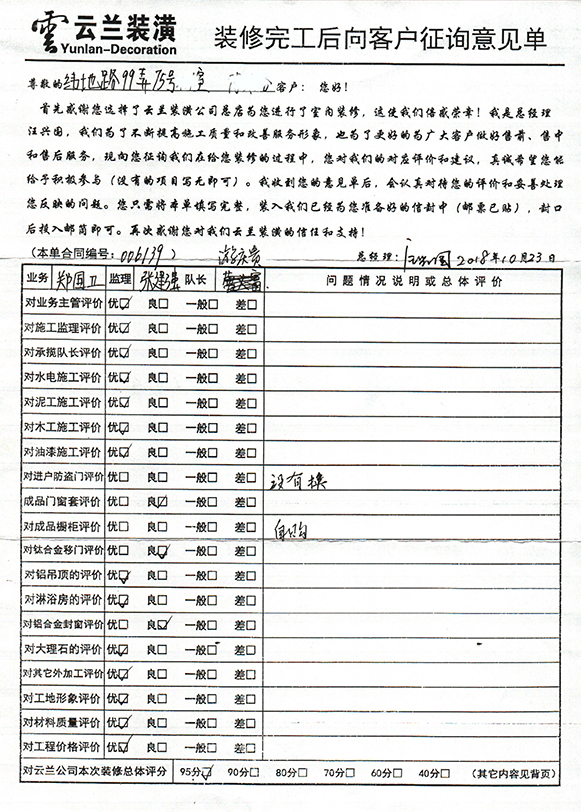 雲 云兰装潢
Yunlan-Decoration
装修完工后向客户征询意见单
尊敬的纬地路99弄75号 室 客户： 您好！
首先感谢您选择了云兰装潢公司总店为您进行了室内装修，这使我们倍感荣幸！我是总经理
汪兴国，我们为了不断提高施工质量和改善服务形象，也为了更好的为广大客户做好售前、售中
和售后服务，现向您征询我们在给您装修的过程中，您对我们的对应评价和建议，真诚希望您能
给予积极参与（没有的项目写无即可）。我收到您的意见单后，会认真对待您的评价和妥善处理
您反映的问题。您只需将本单填写完整，装入我们已经为您准备好的信封中（邮票已贴），封口
后投入邮筒即可。再次感谢您对我们云兰装潢的信任和支持！
(本单合同编号：006139） 游庆贵 总经理：汪兴国 2018年10月23日
业务 郑国卫 监理 张建强 队长 问题情况说明或总体评价
对业务主管评价 优☑ 良□ 一般□ 差□
对施工监理评价 优☑ 良□ 一般□ 差□
对承揽队长评价 优☑ 良□ 一般□ 差□
对水电施工评价 优☑ 良□ 一般□ 差□
对泥工施工评价 优☑ 良□ 一般□ 差□
对木工施工评价 优☑ 良□ 一般□ 差□
对油漆施工评价 优☑ 良□ 一般□ 差□
对进户防盗门评价 优□ 良□ 一般□ 差□ 没有换
成品门窗套评价 优□ 良☑ 一般□ 差□
对成品橱柜评价 优□ 良□ 一般□ 差□ 自购
对钛合金移门评价 优□ 良☑ 一般□ 差□
对铝吊顶的评价 优☑ 良□ 一般□ 差□
对淋浴房的评价 优☑ 良□ 一般□ 差□
对铝合金封窗评价 优□ 良☑ 一般□ 差□
对大理石的评价 优☑ 良□ 一般□ 差□
对其它外加工评价 优☑ 良□ 一般□ 差□
对工地形象评价 优☑ 良□ 一般□ 差□
对材料质量评价 优☑ 良□ 一般□ 差□
对工程价格评价 优☑ 良□ 一般□ 差□
对云兰公司本次装修总体评分 95分☑ 90分□ 80分□ 70分□ 60分□ 40分□ （其它内容见背页）